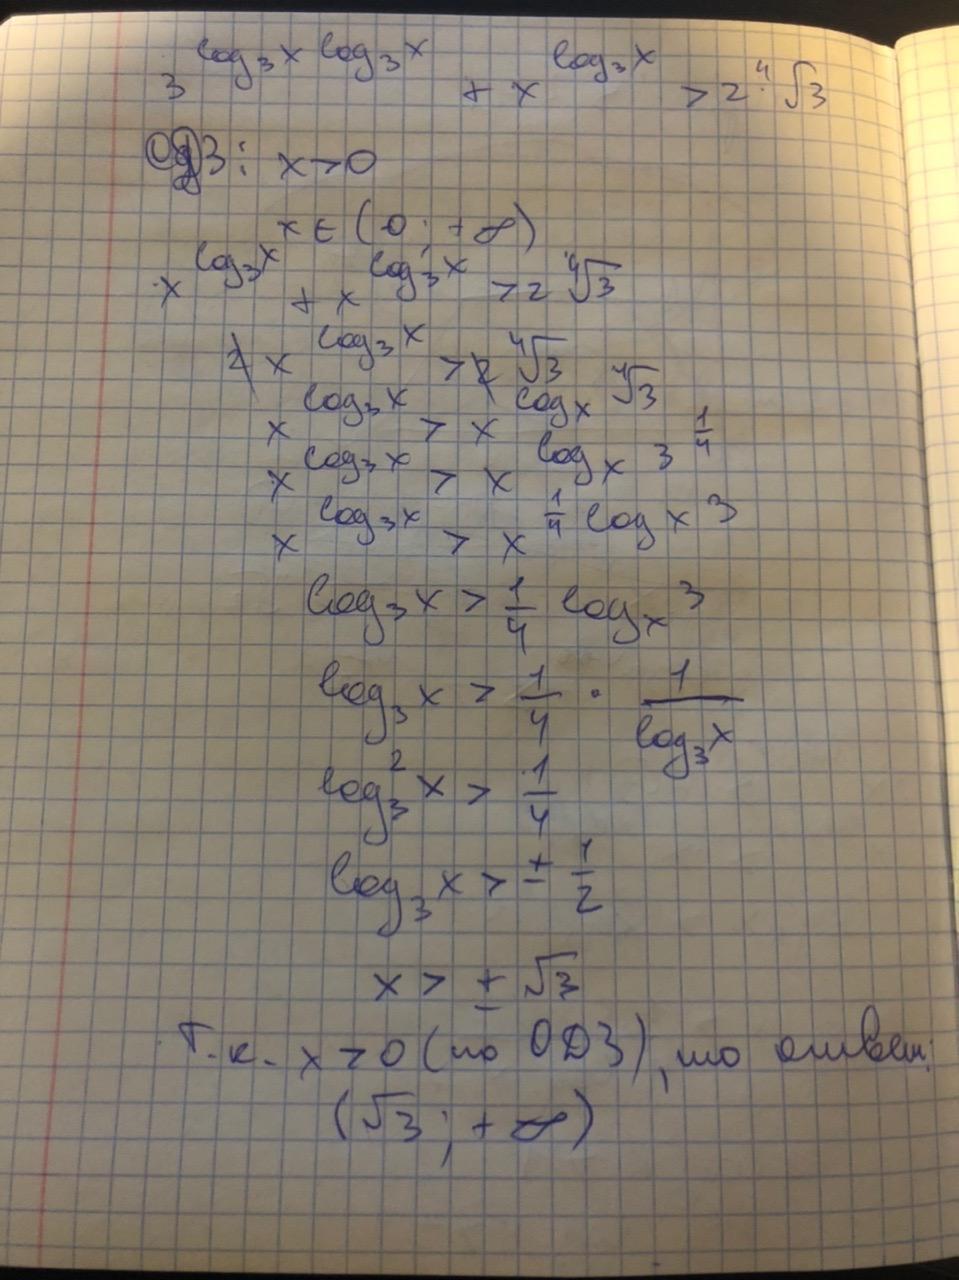 3^{log₃x log₃x} + x^{log₃x} > 2·⁴√3
ОДЗ: x>0
x ∈ (0; +∞)
x^{log₃x} + x^{log₃x} > 2 ⁴√3
2 x^{log₃x} > 2 ⁴√3
x^{log₃x} > x^{logₓ ⁴√3}
x^{log₃x} > x^{logₓ 3^{1/4}}
x^{log₃x} > x^{1/4 logₓ 3}
log₃x > 1/4 logₓ 3
log₃x > 1/4 · 1/log₃x
log₃²x > 1/4
log₃x > ± 1/2
x > ± √3
Т.к. x>0 (по ОДЗ), то ответ:
(√3; +∞)